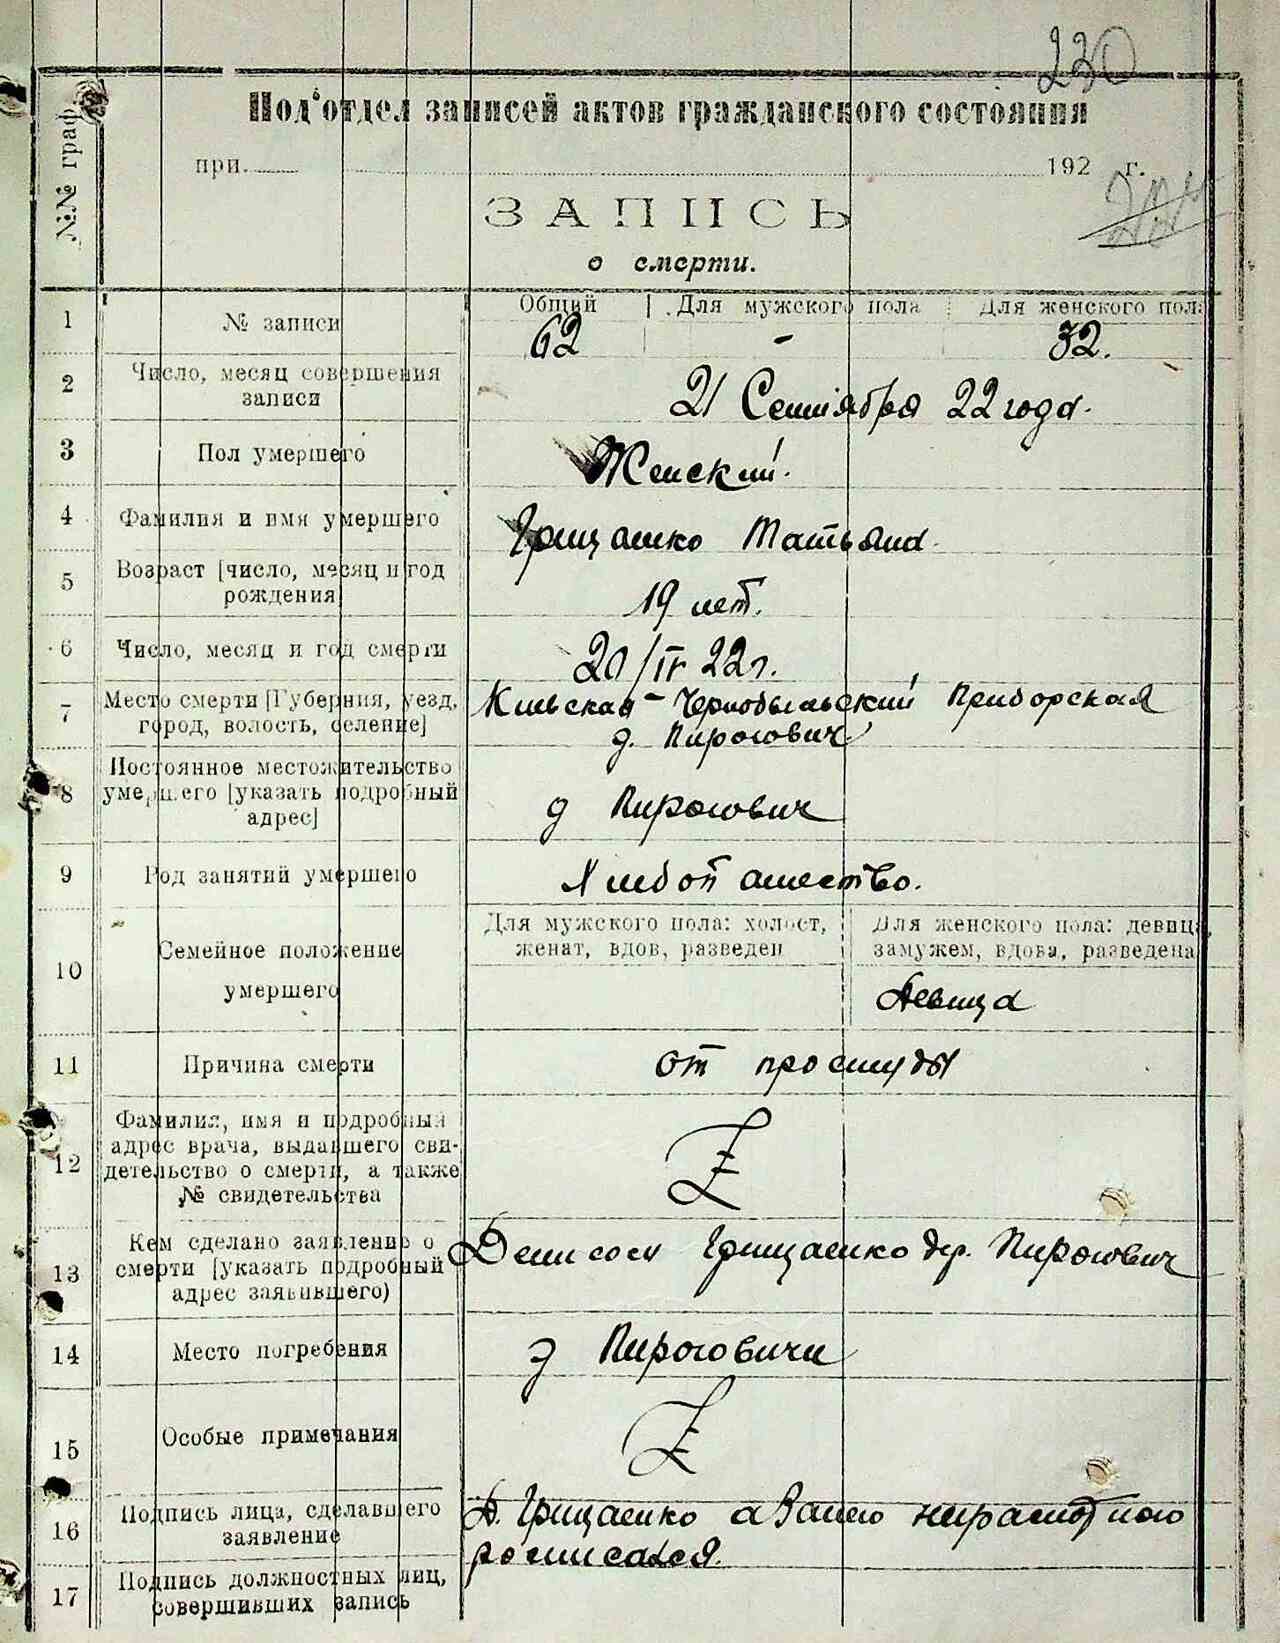 230
№№ граф.
Под'отдел записей актов гражданского состояния
при 192 г.
ЗАПИСЬ
о смерти.
1 № записи Общий Для мужского пола Для женского пола
62 - 32.
2 Число, месяц совершения записи
21 Сентября 22 года.
3 Пол умершего
Женский.
4 Фамилия и имя умершего
Грищенко Татьяна.
5 Возраст [число, месяц и год рождения
19 лет.
6 Число, месяц и год смерти
20/IV 22 г.
7 Место смерти [Губерния, уезд, город, волость, селение]
Киевская - Чернобыльский Приборская
д. Пирогович
8 Постоянное местожительство умершего [указать подробный адрес]
д Пирогович
9 Род занятий умершего
Хлебопашество.
10 Семейное положение умершего
Для мужского пола: холост, женат, вдов, разведен
Для женского пола: девица, замужем, вдова, разведена
Девица
11 Причина смерти
от простуды
12 Фамилия, имя и подробный адрес врача, выдавшего свидетельство о смерти, а также № свидетельства
Z
13 Кем сделано заявление о смерти [указать подробный адрес заявившего)
Грищенко дер. Пирогович
14 Место погребения
д Пироговичи
15 Особые примечания
Z
16 Подпись лица, сделавшего заявление
Д. Грищенко а за него неграмотного
росписался.
17 Подпись должностных лиц, совершивших запись